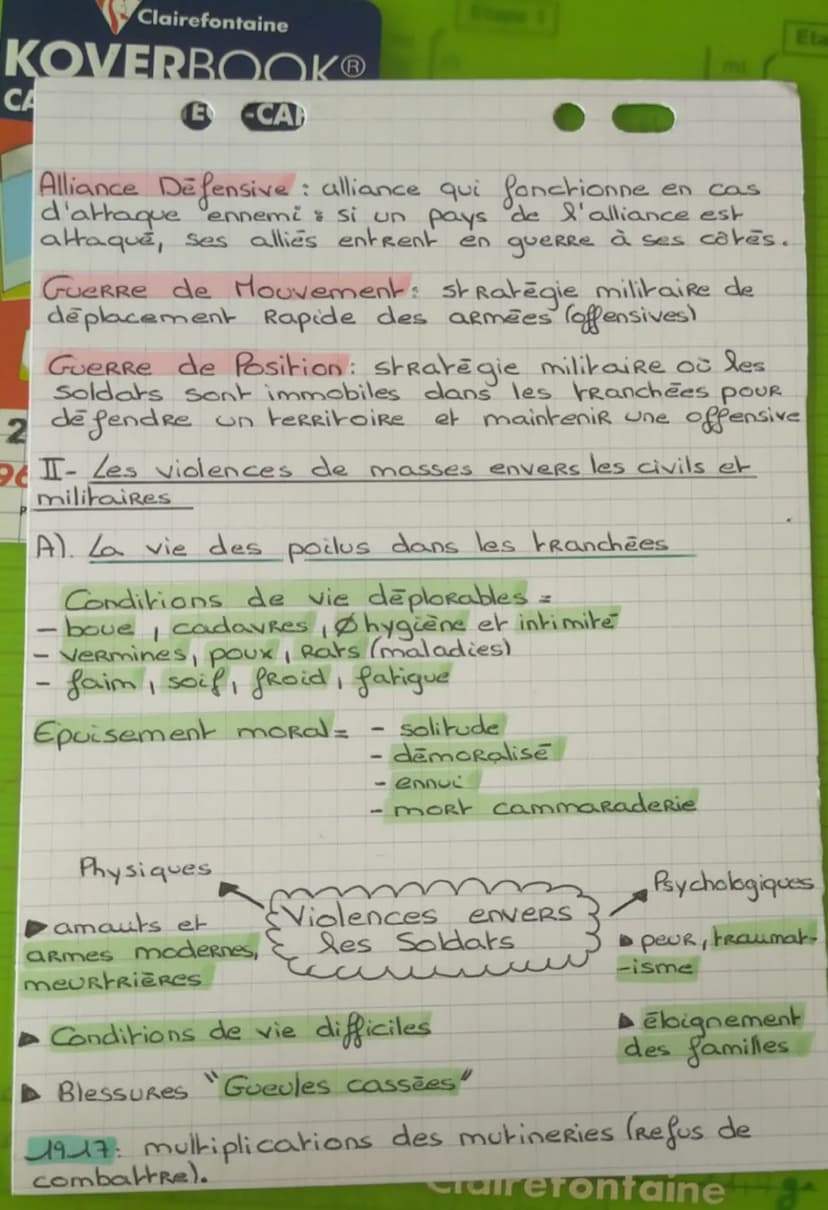 Clairefontaine
KOVERBOOK®
CA
E -CA
Etape 1
Eta
ml
Alliance Défensive : alliance qui fonctionne en cas
d'attaque ennemi : si un pays de l'alliance est
attaqué, ses alliés entrent en guerre à ses côtés.
Guerre de Mouvement : stratégie militaire de
déplacement Rapide des armées (offensives)
Guerre de Position : stratégie militaire où les
soldats sont immobiles dans les tranchées pour
défendre un territoire et maintenir une offensive
2
96
II- Les violences de masses envers les civils et
militaires
A). La vie des poilus dans les tranchées
Conditions de vie déplorables =
- boue, cadavres, Ø hygiène et intimité
- vermines, poux, Rats (maladies)
- faim, soif, froid, fatigue
Epuisement moral = - solitude
- démoralisé
- ennui
- mort cammaraderie
Physiques
Psychologiques
Violences envers
les Soldats
▶ amauts et
armes modernes,
meurtrières
▶ peur, traumat-
-isme
▶ Conditions de vie difficiles
▶ éloignement
des familles
▶ Blessures "Gueules cassées"
1917: multiplications des mutineries (refus de
combattre).
Clairefontaine